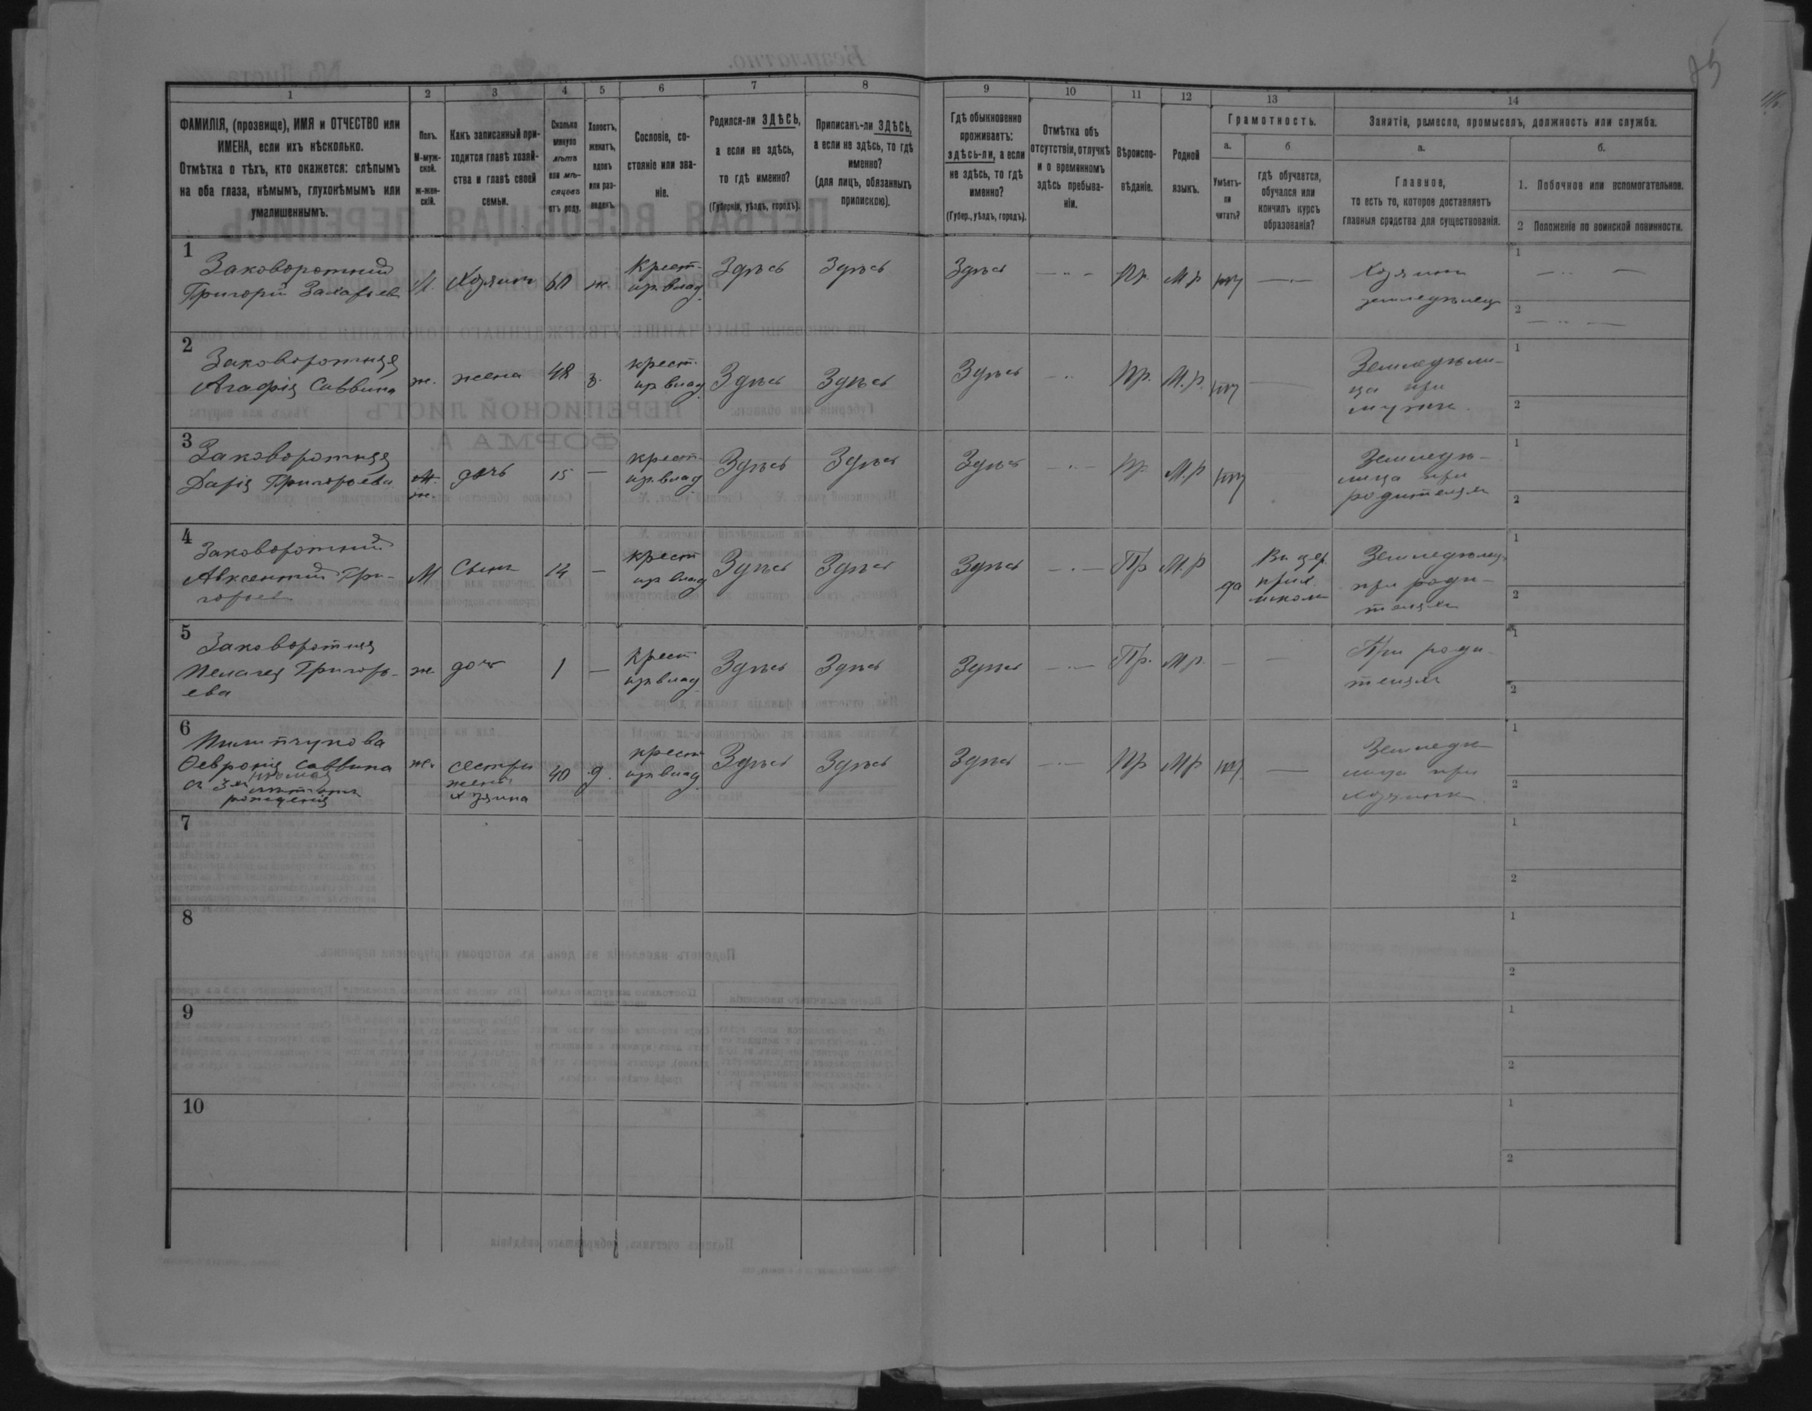 85
1
2
3
4
5
6
7
8
9
10
11
12
13
14
ФАМИЛІЯ, (прозвище), ИМЯ и ОТЧЕСТВО или
ИМЕНА, если ихъ нѣсколько.
Отмѣтка о тѣхъ, кто окажется: слѣпымъ
на оба глаза, нѣмымъ, глухонѣмымъ или
умалишеннымъ.
Полъ.
М-муж-
ской.
Ж-жен-
скій.
Какъ записанный при-
ходится главѣ хозяй-
ства и главѣ своей
семьи.
Сколько
минуло
лѣтъ
или мѣ-
сяцевъ
отъ роду.
Холостъ,
женатъ,
вдовъ
или раз-
веденъ.
Сословіе, со-
стояніе или зва-
ніе.
Родился-ли ЗДѢСЬ,
а если не здѣсь,
то гдѣ именно?
(Губернія, уѣздъ, городъ).
Приписанъ-ли ЗДѢСЬ,
а если не здѣсь, то гдѣ
именно?
(для лицъ, обязанныхъ
припискою).
Гдѣ обыкновенно
проживаетъ:
здѣсь-ли, а если
не здѣсь, то гдѣ
именно?
(Губер., уѣздъ, городъ).
Отмѣтка объ
отсутствіи, отлучкѣ
и о временномъ
здѣсь пребыва-
ніи.
Вѣроиспо-
вѣданіе.
Родной
языкъ.
Грамотность.
а.
Умѣетъ-
ли
читать?
б
гдѣ обучается,
обучался или
кончилъ курсъ
образованія?
Занятіе, ремесло, промыселъ, должность или служба.
а.
Главное,
то есть то, которое доставляетъ
главныя средства для существованія.
б.
1. Побочное или вспомогательное.
2 Положеніе по воинской повинности.
1
Заковоротний
Григорій Захарьев
М.
Хозяинъ
ж.
Крест.
из влад.
Здѣсь
Здѣсь
Здѣсь
Пр.
М.р
нѣт
Хозяинъ
земледѣлец
1
2
2
Заковоротняя
Агафія Саввина
ж.
жена
48
з.
крест.
из влад.
Здѣсь
Здѣсь
Здѣсь
Пр.
М.р.
нѣт
Земледѣли-
ца при
мужѣ.
1
2
3
Заковоротняя
Дарія Григорьева
ж.
дочь
15
—
крест.
из влад
Здѣсь
Здѣсь
Здѣсь
Пр
М.р
нѣт
Земледѣ-
лица при
родителях
1
2
4
Заковоротний
Авксентий Гри-
горьев
М
Сынъ
14
—
крест
из влад
Здѣсь
Здѣсь
Здѣсь
Пр
М.р
да
В цер.
прих.
школѣ
Земледѣлец
при роди-
телях
1
2
5
Заковоротняя
Пелагея Григорь-
ева
ж
дочь
1
—
крест
из влад
Здѣсь
Здѣсь
Здѣсь
Пр.
М.р.
—
—
При роди-
телях
1
2
6
Февронія Саввина
рожденія
ж.
сестра
жены
хозяина
40
д.
крест
из влад.
Здѣсь
Здѣсь
Здѣсь
Пр
М.р
нѣт
—
Земледѣ
лица при
хозяинѣ
1
2
7
1
2
8
1
2
9
1
2
10
1
2